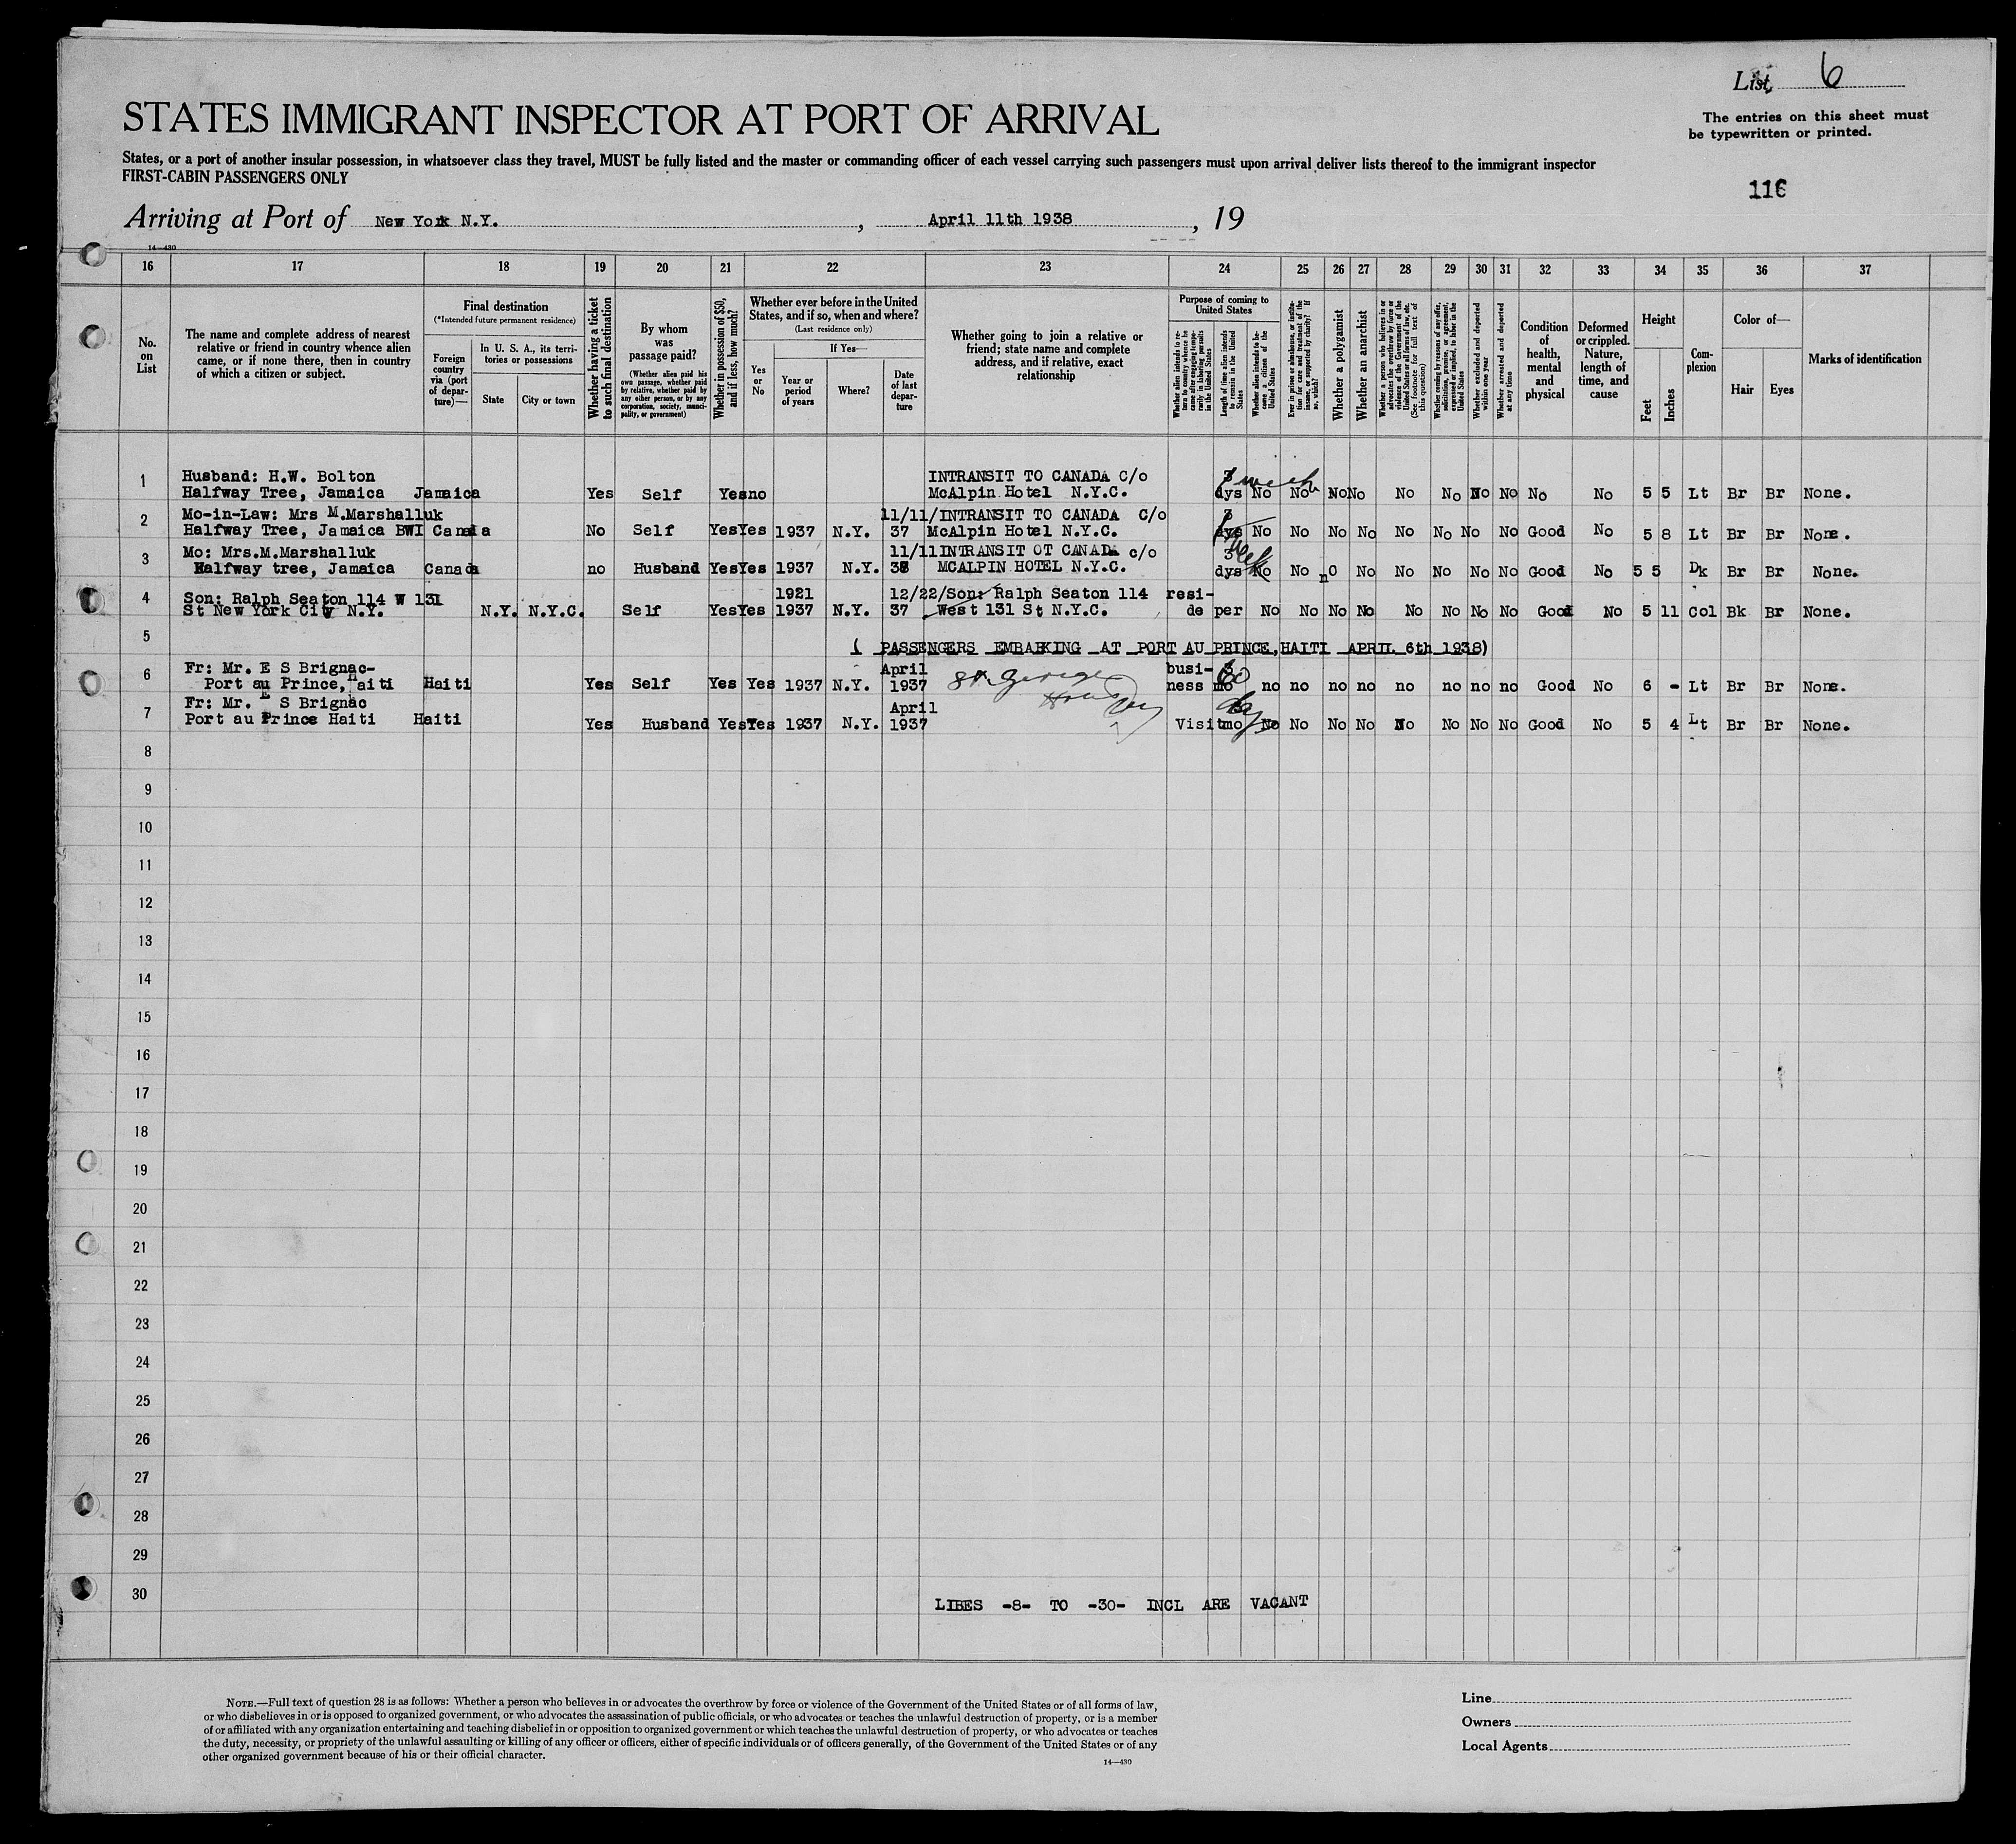 List 6
STATES IMMIGRANT INSPECTOR AT PORT OF ARRIVAL
The entries on this sheet must
be typewritten or printed.
States, or a port of another insular possession, in whatsoever class they travel, MUST be fully listed and the master or commanding officer of each vessel carrying such passengers must upon arrival deliver lists thereof to the immigrant inspector
FIRST-CABIN PASSENGERS ONLY
116
Arriving at Port of New York N.Y. , April 11th 1938 , 19
14—430
16 17 18 19 20 21 22 23 24 25 26 27 28 29 30 31 32 33 34 35 36 37
No. on List
The name and complete address of nearest relative or friend in country whence alien came, or if none there, then in country of which a citizen or subject.
Final destination
(*Intended future permanent residence)
Foreign country via (port of departure)—
In U. S. A., its territories or possessions
State
City or town
Whether having a ticket to such final destination
By whom was passage paid?
(Whether alien paid his own passage, whether paid by relative, whether paid by any other person, or by any corporation, society, municipality, or government)
Whether in possession of $50, and if less, how much?
Whether ever before in the United States, and if so, when and where?
(Last residence only)
Yes or No
If Yes—
Year or period of years
Where?
Date of last departure
Whether going to join a relative or friend; state name and complete address, and if relative, exact relationship
Purpose of coming to United States
Whether alien intends to return to country whence he came after engaging temporarily in laboring pursuits in the United States
Length of time alien intends to remain in the United States
Whether alien intends to become a citizen of the United States
Ever in prison or almshouse, or institution for care and treatment of the insane, or supported by charity? If so, which?
Whether a polygamist
Whether an anarchist
Whether a person who believes in or advocates the overthrow by force or violence of the Government of the United States or all forms of law, etc. (See footnote for full text of this question)
Whether coming by reasons of any offer, solicitation, promise, or agreement, expressed or implied, to labor in the United States
Whether excluded and deported within one year
Whether arrested and deported at any time
Condition of health, mental and physical
Deformed or crippled. Nature, length of time, and cause
Height
Feet
Inches
Complexion
Color of—
Hair
Eyes
Marks of identification
1 Husband: H.W. Bolton INTRANSIT TO CANADA C/o 3 week
Halfway Tree, Jamaica Jamaica Yes Self Yes no McAlpin Hotel N.Y.C. dys No No No No No No No No No No 5 5 Lt Br Br None.
2 Mo-in-Law: Mrs M.Marshalluk 11/11/ INTRANSIT TO CANADA C/o 3
Halfway Tree, Jamaica BWI Canada No Self Yes Yes 1937 N.Y. 37 McAlpin Hotel N.Y.C. dys No No No No No No No No Good No 5 8 Lt Br Br None.
3 Mo: Mrs.M.Marshalluk 11/11 INTRANSIT OT CANADA c/o 3 week
Halfway tree, Jamaica Canada no Husband Yes Yes 1937 N.Y. 38 MCALPIN HOTEL N.Y.C. dys No No nO No No No No No Good No 5 5 Dk Br Br None.
4 Son: Ralph Seaton 114 W 131 1921 12/22/ Son: Ralph Seaton 114 resi-
St New York City N.Y. N.Y. N.Y.C. Self Yes Yes 1937 N.Y. 37 West 131 St N.Y.C. de per No No No No No No No No Good No 5 11 Col Bk Br None.
5 ( PASSENGERS EMBARKING AT PORT AU PRINCE, HAITI APRIL 6th 1938)
6 Fr: Mr. E S Brignac- April St. George busi- 60
Port au Prince, Haiti Haiti Yes Self Yes Yes 1937 N.Y. 1937 Hotel ness mo no no no no no no no no Good No 6 - Lt Br Br None.
7 Fr: Mr. E S Brignac April
Port au Prince Haiti Haiti Yes Husband Yes Yes 1937 N.Y. 1937 Visit mo No No No No No No No No Good No 5 4 Lt Br Br None.
8
9
10
11
12
13
14
15
16
17
18
19
20
21
22
23
24
25
26
27
28
29
30
LIBES -8- TO -30- INCL ARE VACANT
NOTE.—Full text of question 28 is as follows: Whether a person who believes in or advocates the overthrow by force or violence of the Government of the United States or of all forms of law,
or who disbelieves in or is opposed to organized government, or who advocates the assassination of public officials, or who advocates or teaches the unlawful destruction of property, or is a member
of or affiliated with any organization entertaining and teaching disbelief in or opposition to organized government or which teaches the unlawful destruction of property, or who advocates or teaches
the duty, necessity, or propriety of the unlawful assaulting or killing of any officer or officers, either of specific individuals or of officers generally, of the Government of the United States or of any
other organized government because of his or their official character.
14—430
Line
Owners
Local Agents